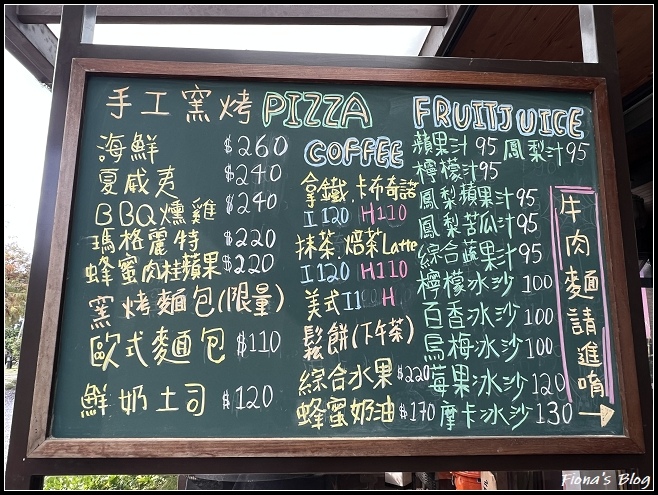 手工窯烤PIZZA
海鮮 $260
夏威夷 $240
BBQ燻雞 $240
瑪格麗特 $220
蜂蜜肉桂蘋果 $220
窯烤麵包(限量)
歐式麵包 $110
鮮奶土司 $120
COFFEE
拿鐵.卡布奇諾
I 120 H110
抹茶.焙茶Latte
I 120 H110
美式 I H
鬆餅(下午茶)
綜合水果 $220
蜂蜜奶油 $170
FRUITJUICE
蘋果汁 95 鳳梨汁 95
檸檬汁 95
鳳梨蘋果汁 95
鳳梨苦瓜汁 95
綜合蔬果汁 95
檸檬冰沙 100
百香冰沙 100
烏梅冰沙 100
莓果冰沙 120
摩卡冰沙 130
牛肉麵請進唷
Fiona's Blog